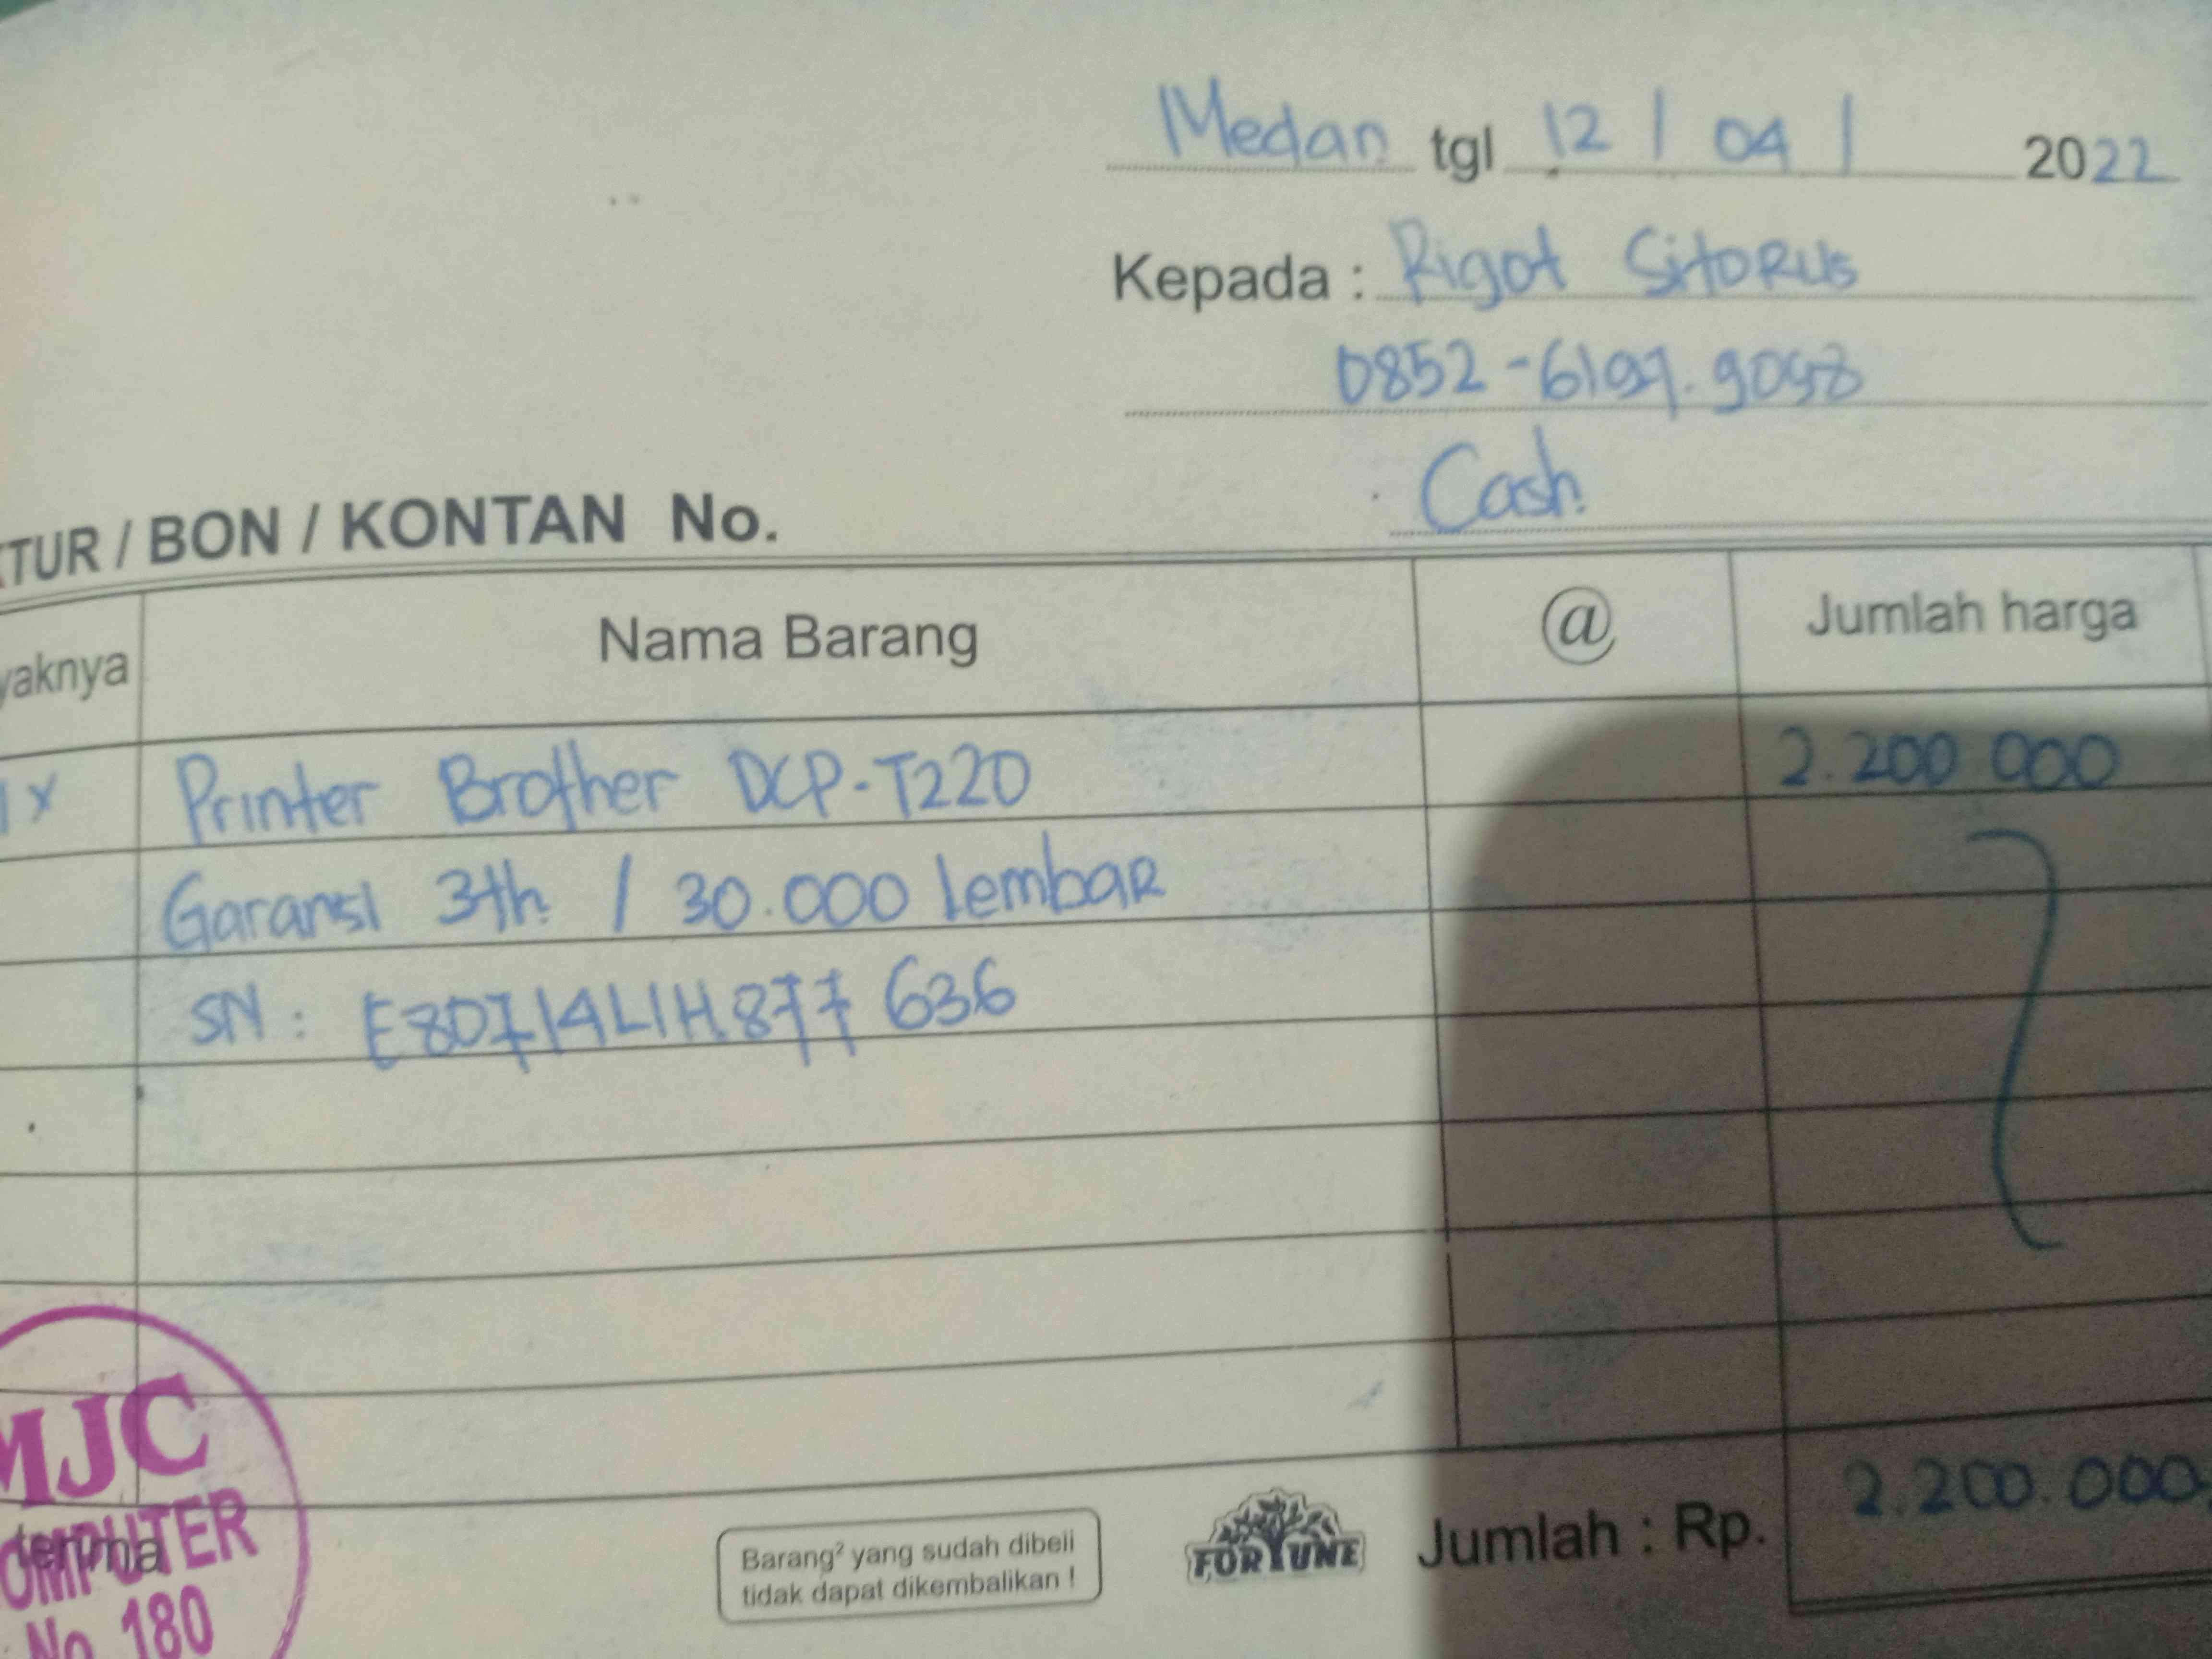 Medan tgl 12 / 04 / 2022
Kepada : Rigot Sitorus
Cash
TUR / BON / KONTAN No.
yaknya Nama Barang @ Jumlah harga
1x Printer Brother DCP-T220 2.200 000
Garansi 3th / 30.000 lembar
SN : E80714L1H877636
MJC
OMPUTER
terima
No 180
Barang² yang sudah dibeli
tidak dapat dikembalikan !
FORTUNE
Jumlah : Rp. 2.200.000